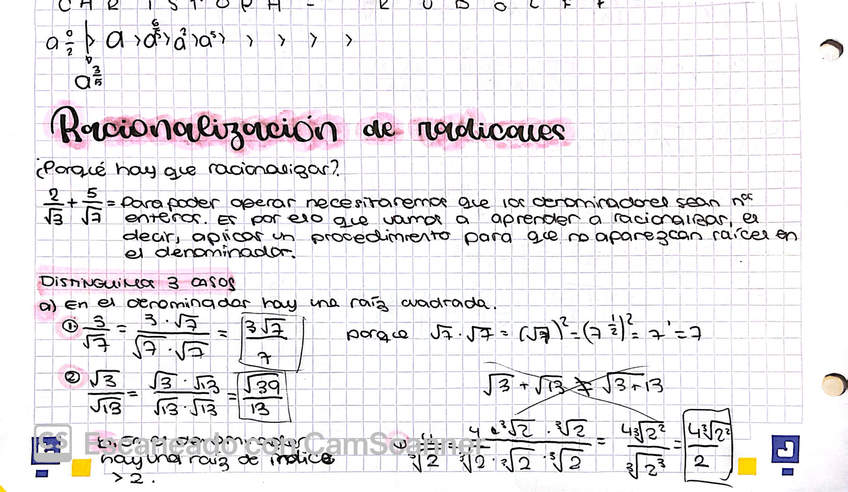 a 0/2 > a > a^6/5 > a² > a⁵ > > > > >
a^3/5
Racionalización de radicales
¿Porqué hay que racionalizar?
2/√3 + 5/√7 = para poder operar necesitaremos que los denominadores sean nºs
enteros. Es por eso que vamos a aprender a racionalizar, es
decir, aplicar un procedimiento para que no aparezcan raíces en
el denominador.
DISTINGUIMOS 3 CASOS
a) En el denominador hay una raíz cuadrada.
① 3/√7 = 3·√7/√7·√7 = 3√7/7 porque √7·√7 = (√7)² = (7^1/2)² = 7¹ = 7
② √3/√13 = √3·√13/√13·√13 = √39/13 √3 + √13 ≠ √3+13
b) En el denominador
hay una raíz de índice
> 2.
① 4/³√2 = 4·³√2·³√2/³√2·³√2·³√2 = 4³√2²/³√2³ = 4³√2²/2
CS Escaneado con CamScanner